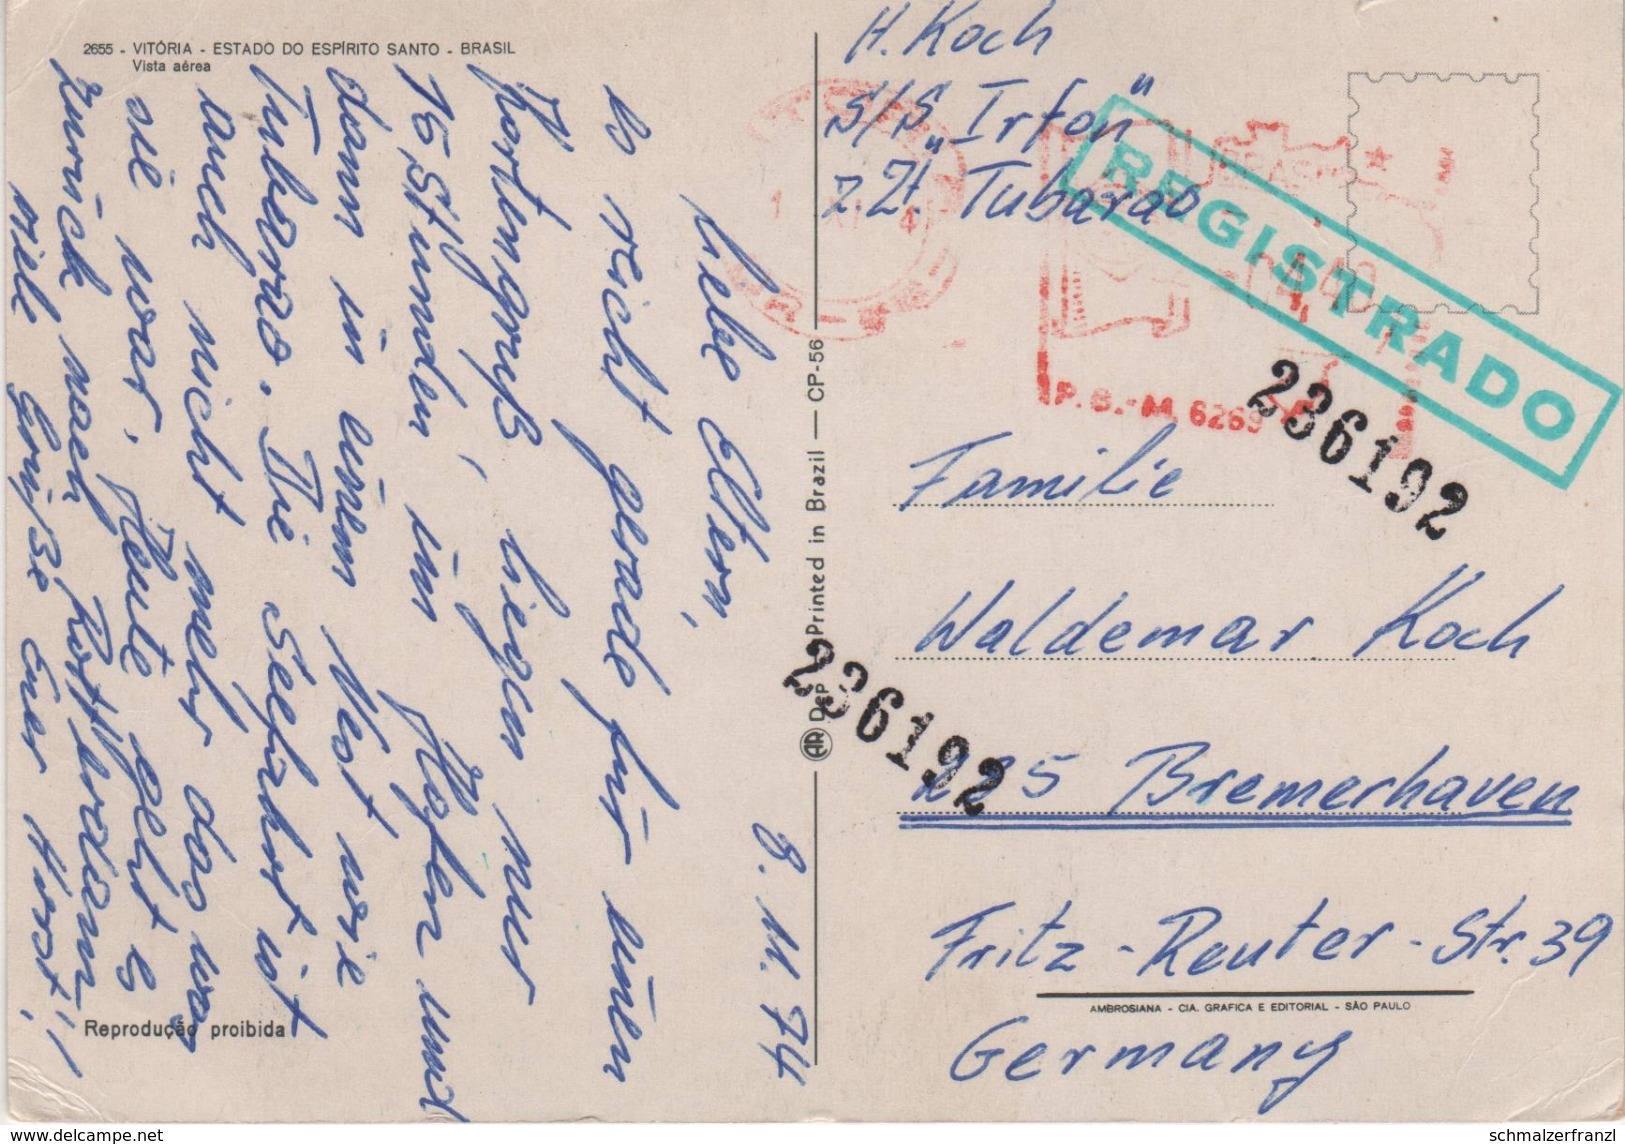 2655 - VITÓRIA - ESTADO DO ESPÍRITO SANTO - BRASIL
Vista aérea
8. 11. 74
Liebe Eltern,
es reicht gerade für einen
Kartengruß, liegen nur
15 Stunden, im Hafen und
dann in einem Nest wie
Tubarao. Die Seefahrt ist
auch nicht mehr das was
sie war. Heute geht es
zurück nach Rotterdam
viele Grüße Euer Horst!!
Reprodução proibida
Printed in Brazil — CP-56
AR
H. Koch
S/S „Irfon"
z.Zt. Tubarao
REGISTRADO
BRASIL
P.B.-M. 6269
236192
236192
Familie
Waldemar Koch
285 Bremerhaven
Fritz-Reuter-Str. 39
AMBROSIANA - CIA. GRAFICA E EDITORIAL - SÃO PAULO
Germany
www.delcampe.net
schmalzerfranzl